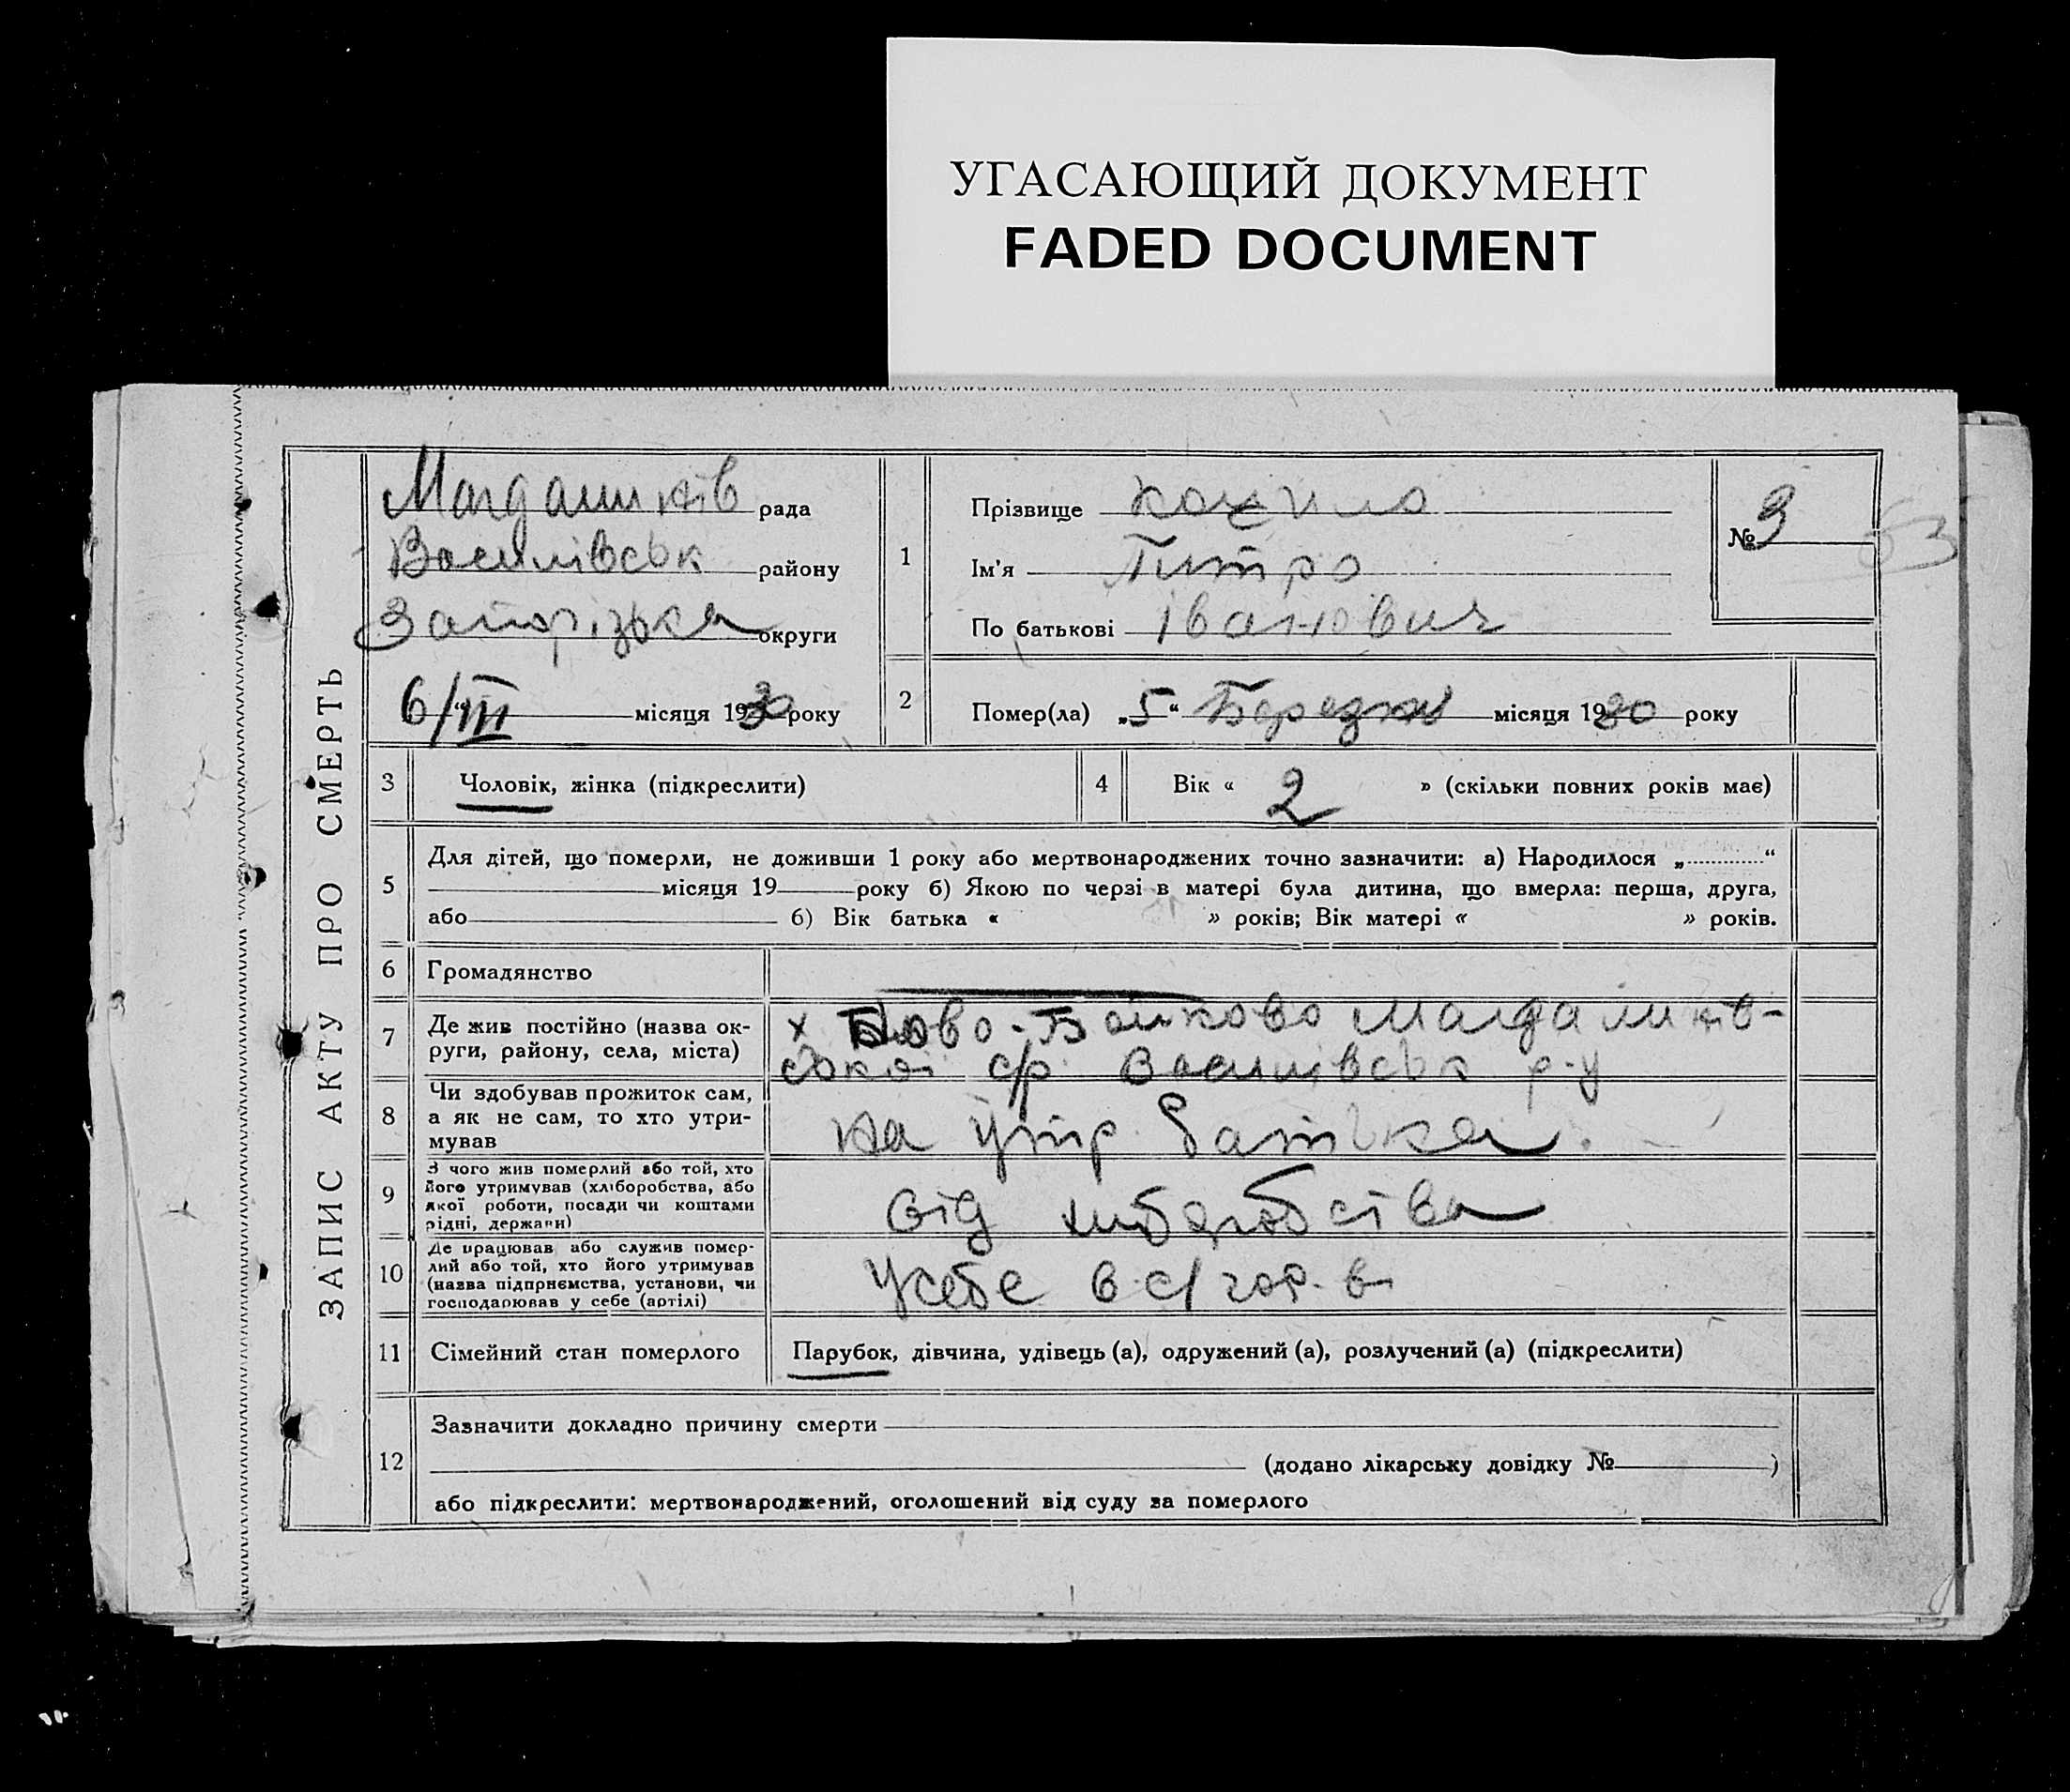 УГАСАЮЩИЙ ДОКУМЕНТ
FADED DOCUMENT
ЗАПИС АКТУ ПРО СМЕРТЬ
Магдалинів рада
Василівськ району
Запорізька округи
6/III місяця 1930 року
1
Прізвище
Ім'я Питро
По батькові Іванович
№ 3
63
2
Помер(ла) „5“ Березня місяця 1930 року
3 Чоловік, жінка (підкреслити)
4 Вік « 2 » (скільки повних років має)
5
Для дітей, що померли, не доживши 1 року або мертвонароджених точно зазначити: а) Народилося „ “
місяця 19 року б) Якою по черзі в матері була дитина, що вмерла: перша, друга,
або б) Вік батька « » років; Вік матері « » років.
6 Громадянство
7 Де жив постійно (назва ок-
руги, району, села, міста)
х Ново-Бойково Магдалинів-
ської с/р Василівськ р-у
8 Чи здобував прожиток сам,
а як не сам, то хто утри-
мував
на утр. батька.
9 З чого жив померлий або той, хто
його утримував (хліборобства, або
якої роботи, посади чи коштами
рідні, держави)
від хліборобства
10 Де працював або служив помер-
лий або той, хто його утримував
(назва підприємства, установи, чи
господарював у себе (артілі)
усебе в с/гос. в
11 Сімейний стан померлого
Парубок, дівчина, удівець (а), одружений (а), розлучений (а) (підкреслити)
12
Зазначити докладно причину смерти
(додано лікарську довідку № )
або підкреслити: мертвонароджений, оголошений від суду за померлого